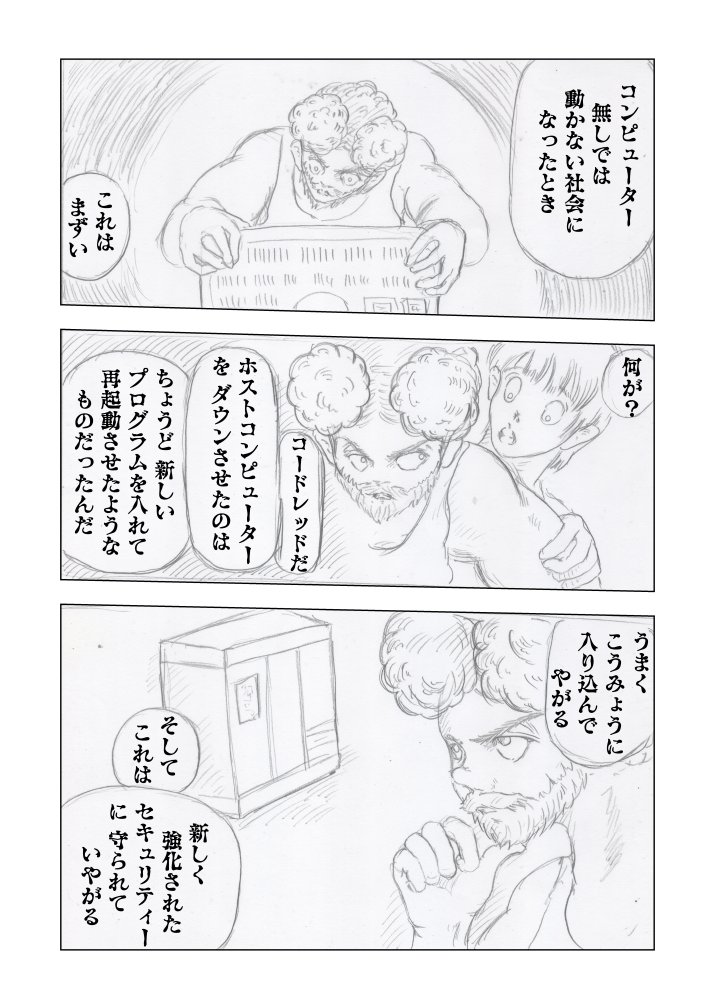 コンピューター
無しでは
動かない社会に
なったとき
これは
まずい
何が?
コードレッドだ
ホストコンピューター
を ダウンさせたのは
ちょうど 新しい
プログラムを入れて
再起動させたような
ものだったんだ
うまく
こうみょうに
入り込んで
やがる
そして
これは
新しく
強化された
セキュリティー
に 守られて
いやがる